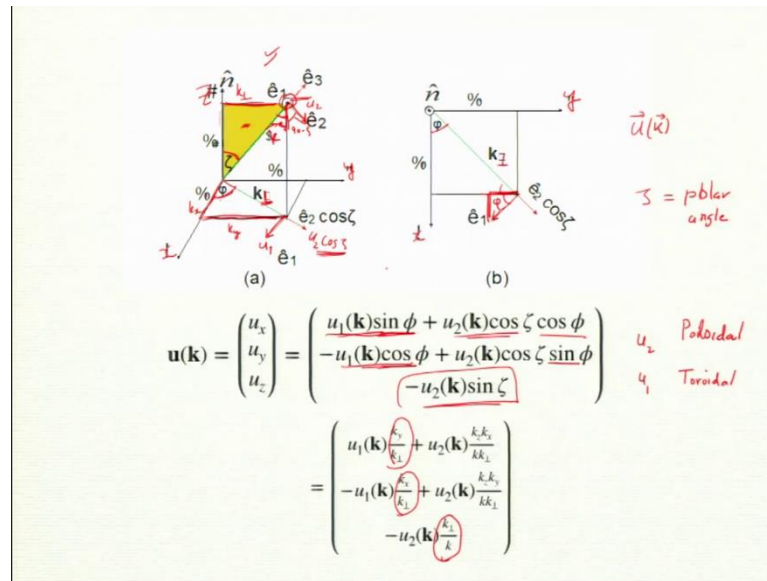 n̂
z
k⊥
ê₁
ê₃
u₂
ê₂
%
ζ
%
y
%
φ
k⊥
kx
ky
ê₂ cosζ
u₁
u₂ cosζ
t
ê₁
(a)
n̂
%
y
φ
%
k⊥
φ
ê₂ cosζ
ê₁
t
(b)
u⃗(k⃗)
ζ = polar
angle
u(k) = (ux uy uz) = (u₁(k)sin ϕ + u₂(k)cos ζ cos ϕ
−u₁(k)cos ϕ + u₂(k)cos ζ sin ϕ
−u₂(k)sin ζ)
u₂ Poloidal
u₁ Toroidal
= (u₁(k) ky/k⊥ + u₂(k) kzkx/kk⊥
−u₁(k) kx/k⊥ + u₂(k) kzky/kk⊥
−u₂(k) k⊥/k)